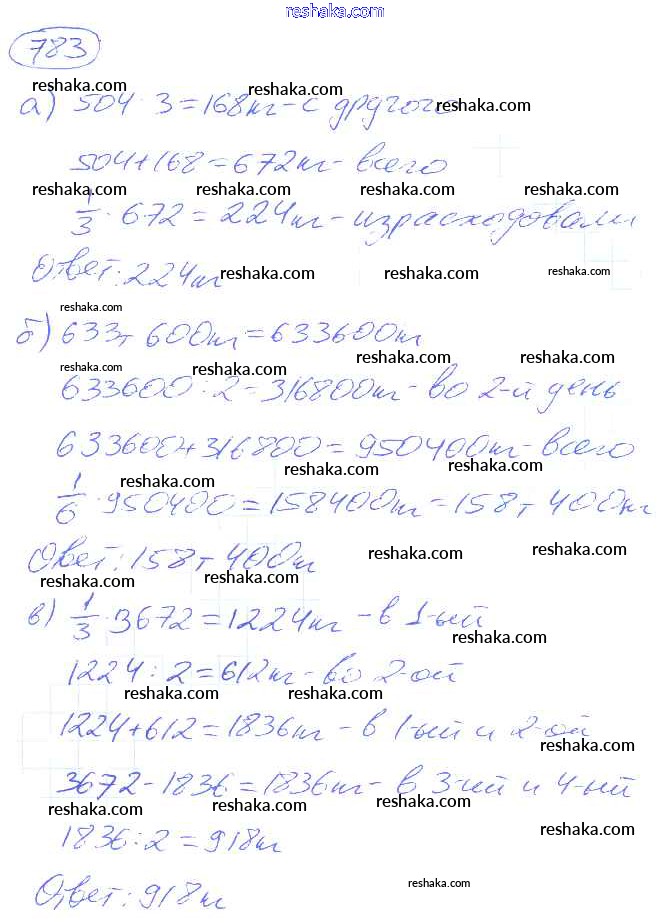 reshaka.com
783
reshaka.com reshaka.com reshaka.com
а) 504 : 3 = 168кг - с другого
504 + 168 = 672кг - всего
reshaka.com reshaka.com reshaka.com reshaka.com
1/3 · 672 = 224кг - израсходовали
Ответ: 224кг
reshaka.com reshaka.com reshaka.com
reshaka.com
б) 633т 600кг = 633600кг
reshaka.com reshaka.com reshaka.com reshaka.com
633600 : 2 = 316800кг - во 2-й день
633600 + 316800 = 950400кг - всего
reshaka.com reshaka.com reshaka.com
1/6 · 950400 = 158400кг = 158т 400кг
reshaka.com reshaka.com
Ответ: 158т 400кг
reshaka.com reshaka.com
reshaka.com reshaka.com
в) 1/3 · 3672 = 1224кг - в 1-ый
reshaka.com
1224 : 2 = 612кг - во 2-ой
reshaka.com reshaka.com
1224 + 612 = 1836кг - в 1-ый и 2-ой
reshaka.com
3672 - 1836 = 1836кг - в 3-ий и 4-ый
reshaka.com reshaka.com reshaka.com
1836 : 2 = 918кг
reshaka.com
Ответ: 918кг
reshaka.com